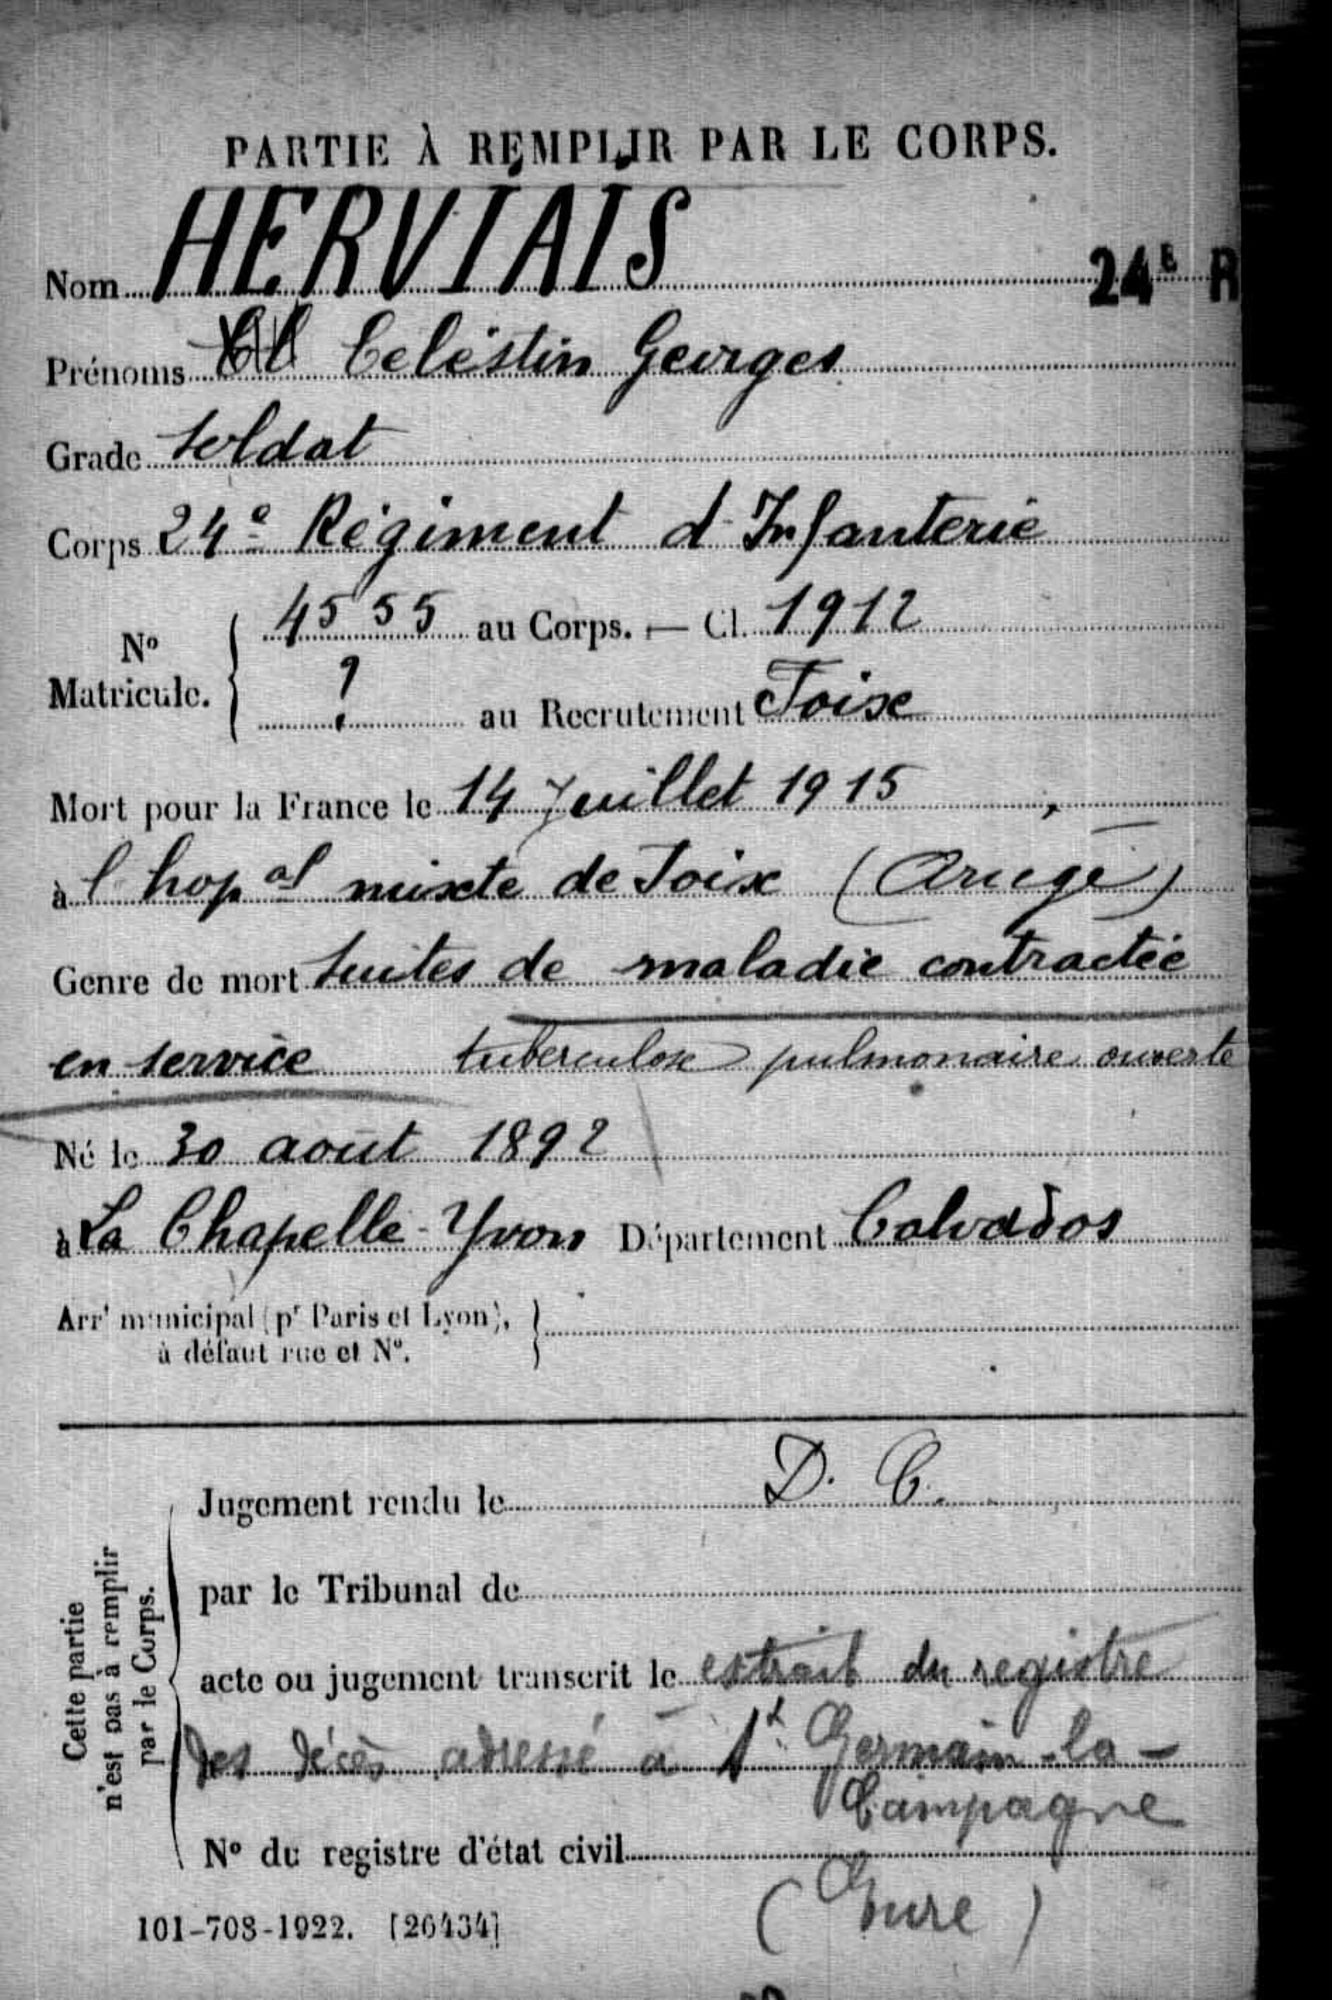 PARTIE À REMPLIR PAR LE CORPS.
Nom HERVIAIS 24E R
Prénoms Celéstin Georges
Grade Soldat
Corps 24e Régiment d'Infanterie
No Matricule. 4555 au Corps. — Cl. 1912
? au Recrutement Foix
Mort pour la France le 14 Juillet 1915
à l'hopal mixte de Foix (Ariège)
Genre de mort suites de maladie contractée
en service tuberculose pulmonaire ouverte
Né le 30 août 1892
à La Chapelle-Yvon Département Calvados
Arrt municipal (pr Paris et Lyon),
à défaut rue et No.
Cette partie
n'est pas à remplir
par le Corps.
Jugement rendu le D. C.
par le Tribunal de
acte ou jugement transcrit le extrait du registre
des décès adressé à St Germain-la-
Campagne
No du registre d'état civil
(Eure)
101-708-1922. [26434]